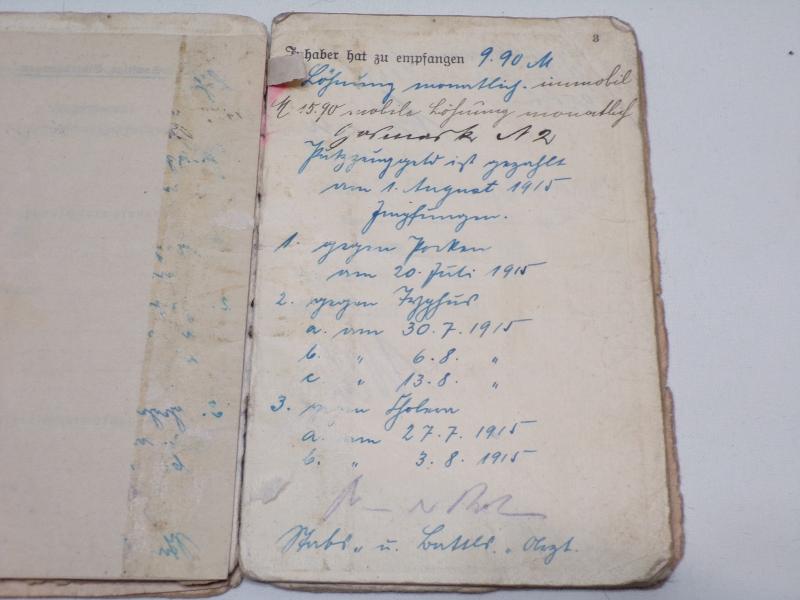 3
Inhaber hat zu empfangen 9.90 M
Löhnung monatlich. immobil
M 15.90 mobile Löhnung monatlich
Gasmaske N 2
Putzzeuggeld ist gezahlt
am 1. August 1915
Impfungen.
1. gegen Pocken
am 20. Juli 1915
2. gegen Typhus
a. am 30.7.1915
b. " 6.8. "
c " 13.8. "
3. gegen Cholera
a. am 27.7.1915
b. " 3.8.1915
Stabs- u. Batls.-Arzt.